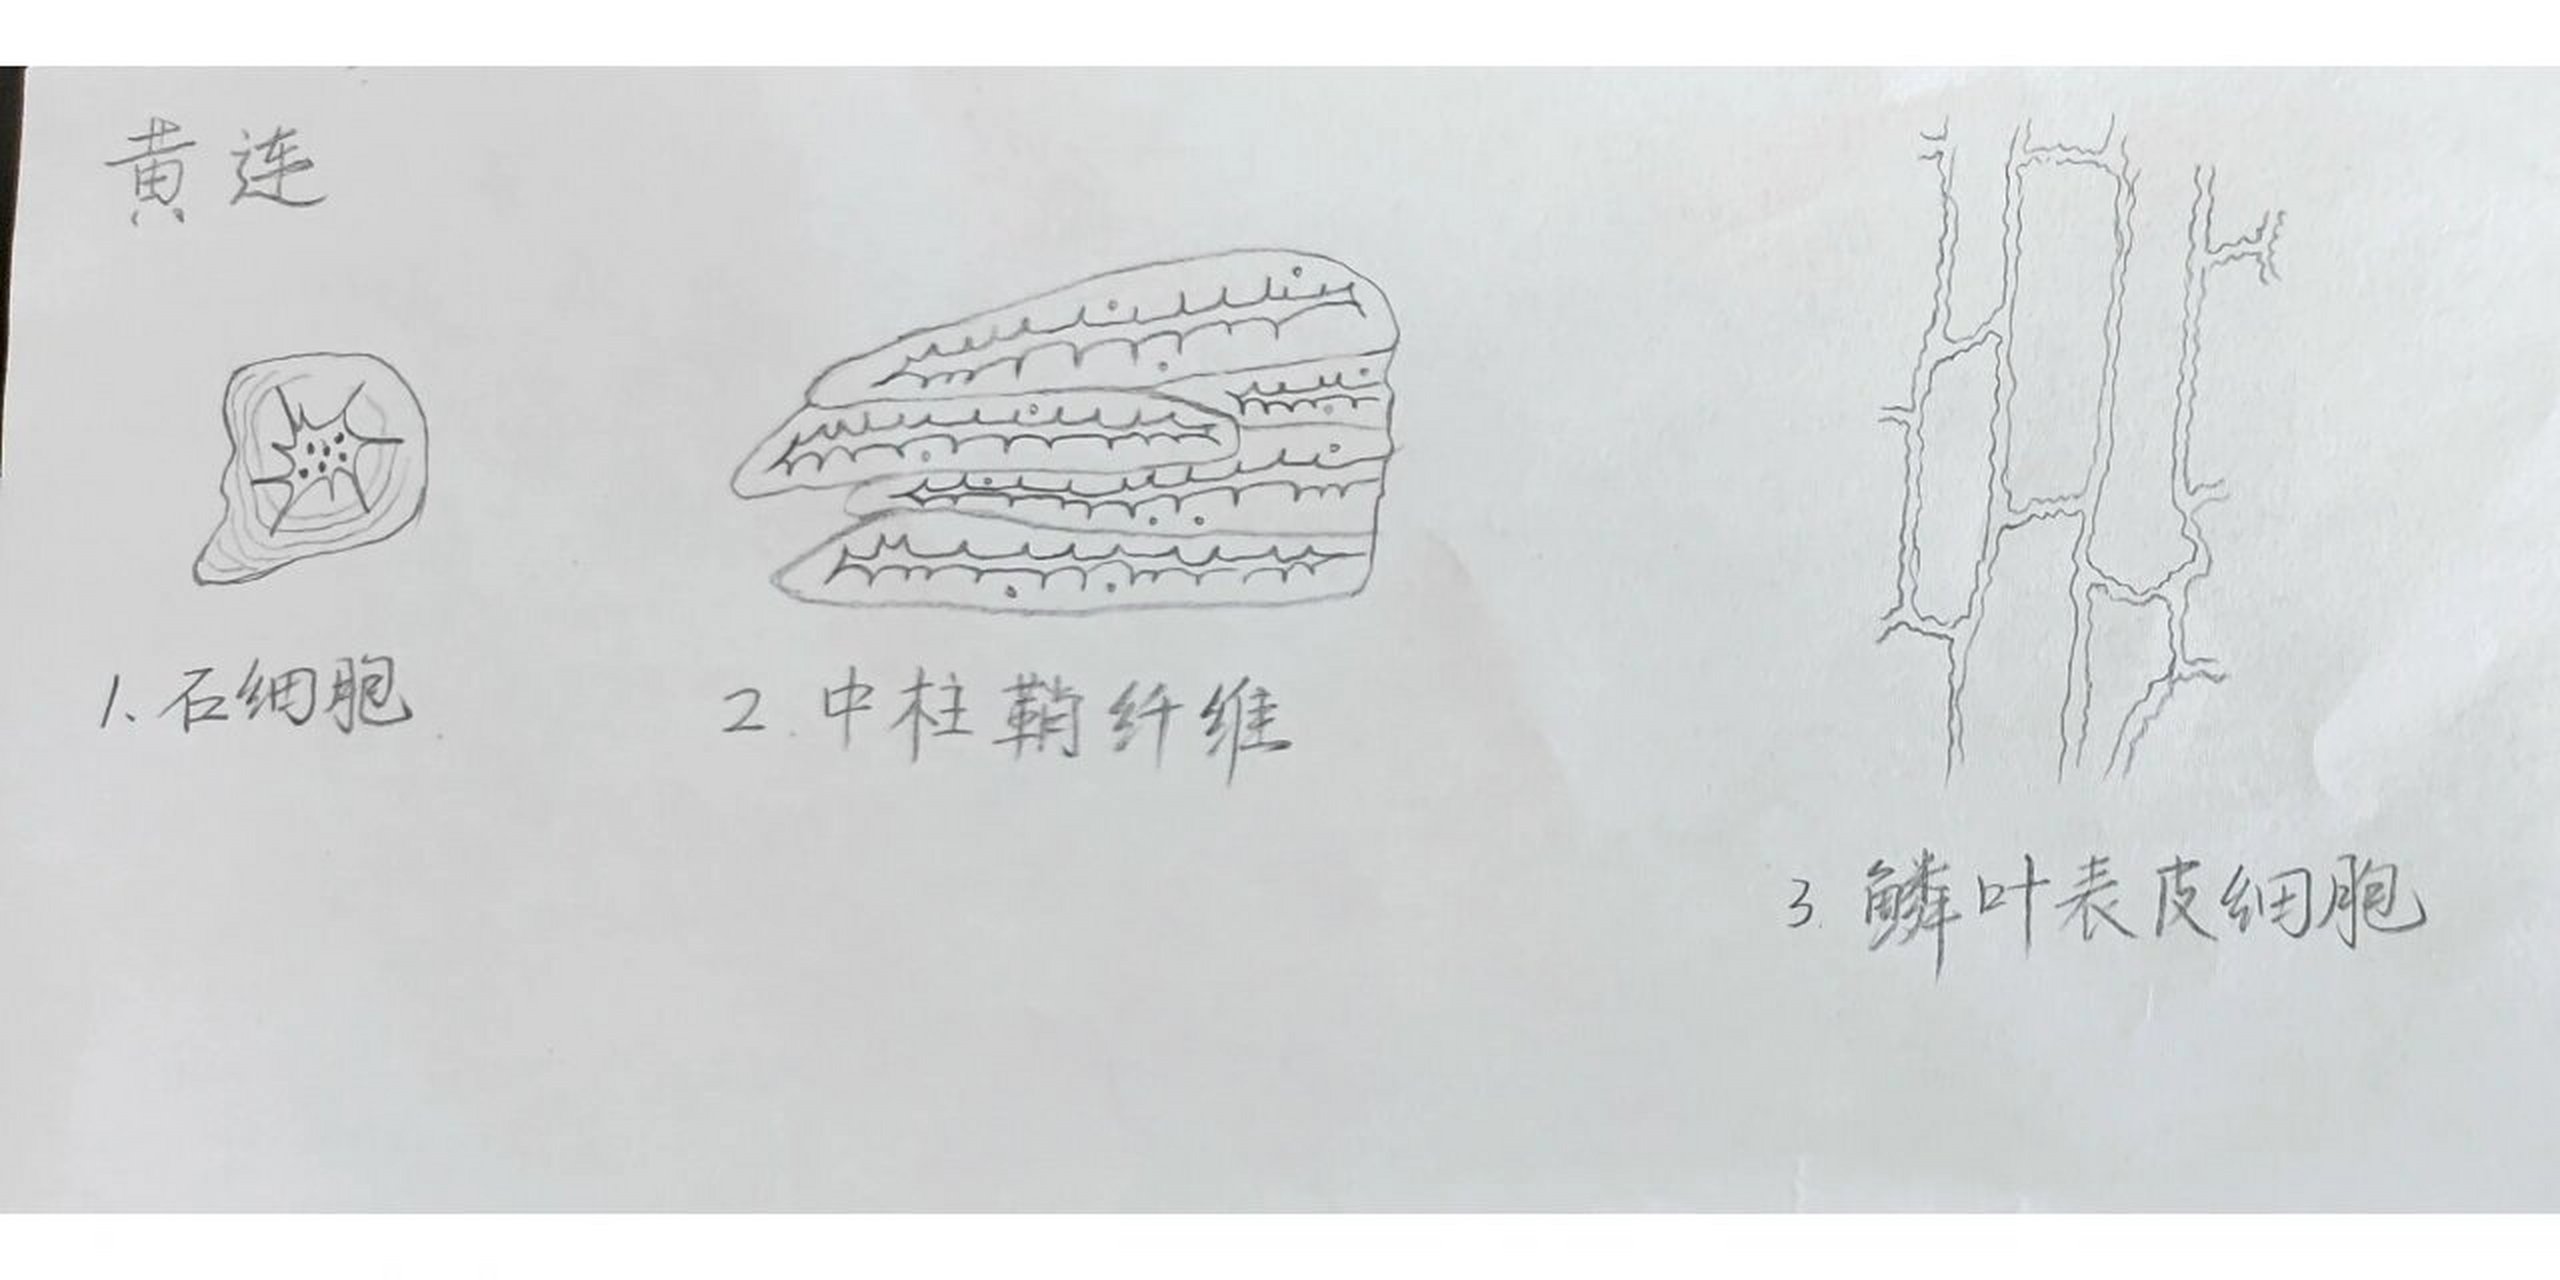 黄连
1.石细胞
2.中柱鞘纤维
3.鳞叶表皮细胞